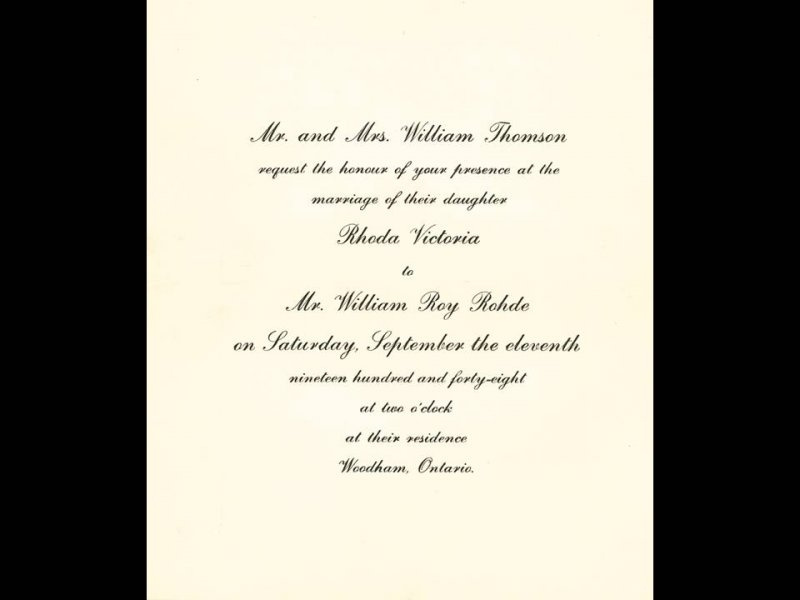 Mr. and Mrs. William Thomson
request the honour of your presence at the
marriage of their daughter
Rhoda Victoria
to
Mr. William Roy Rohde
on Saturday, September the eleventh
nineteen hundred and forty-eight
at two o'clock
at their residence
Woodham, Ontario.